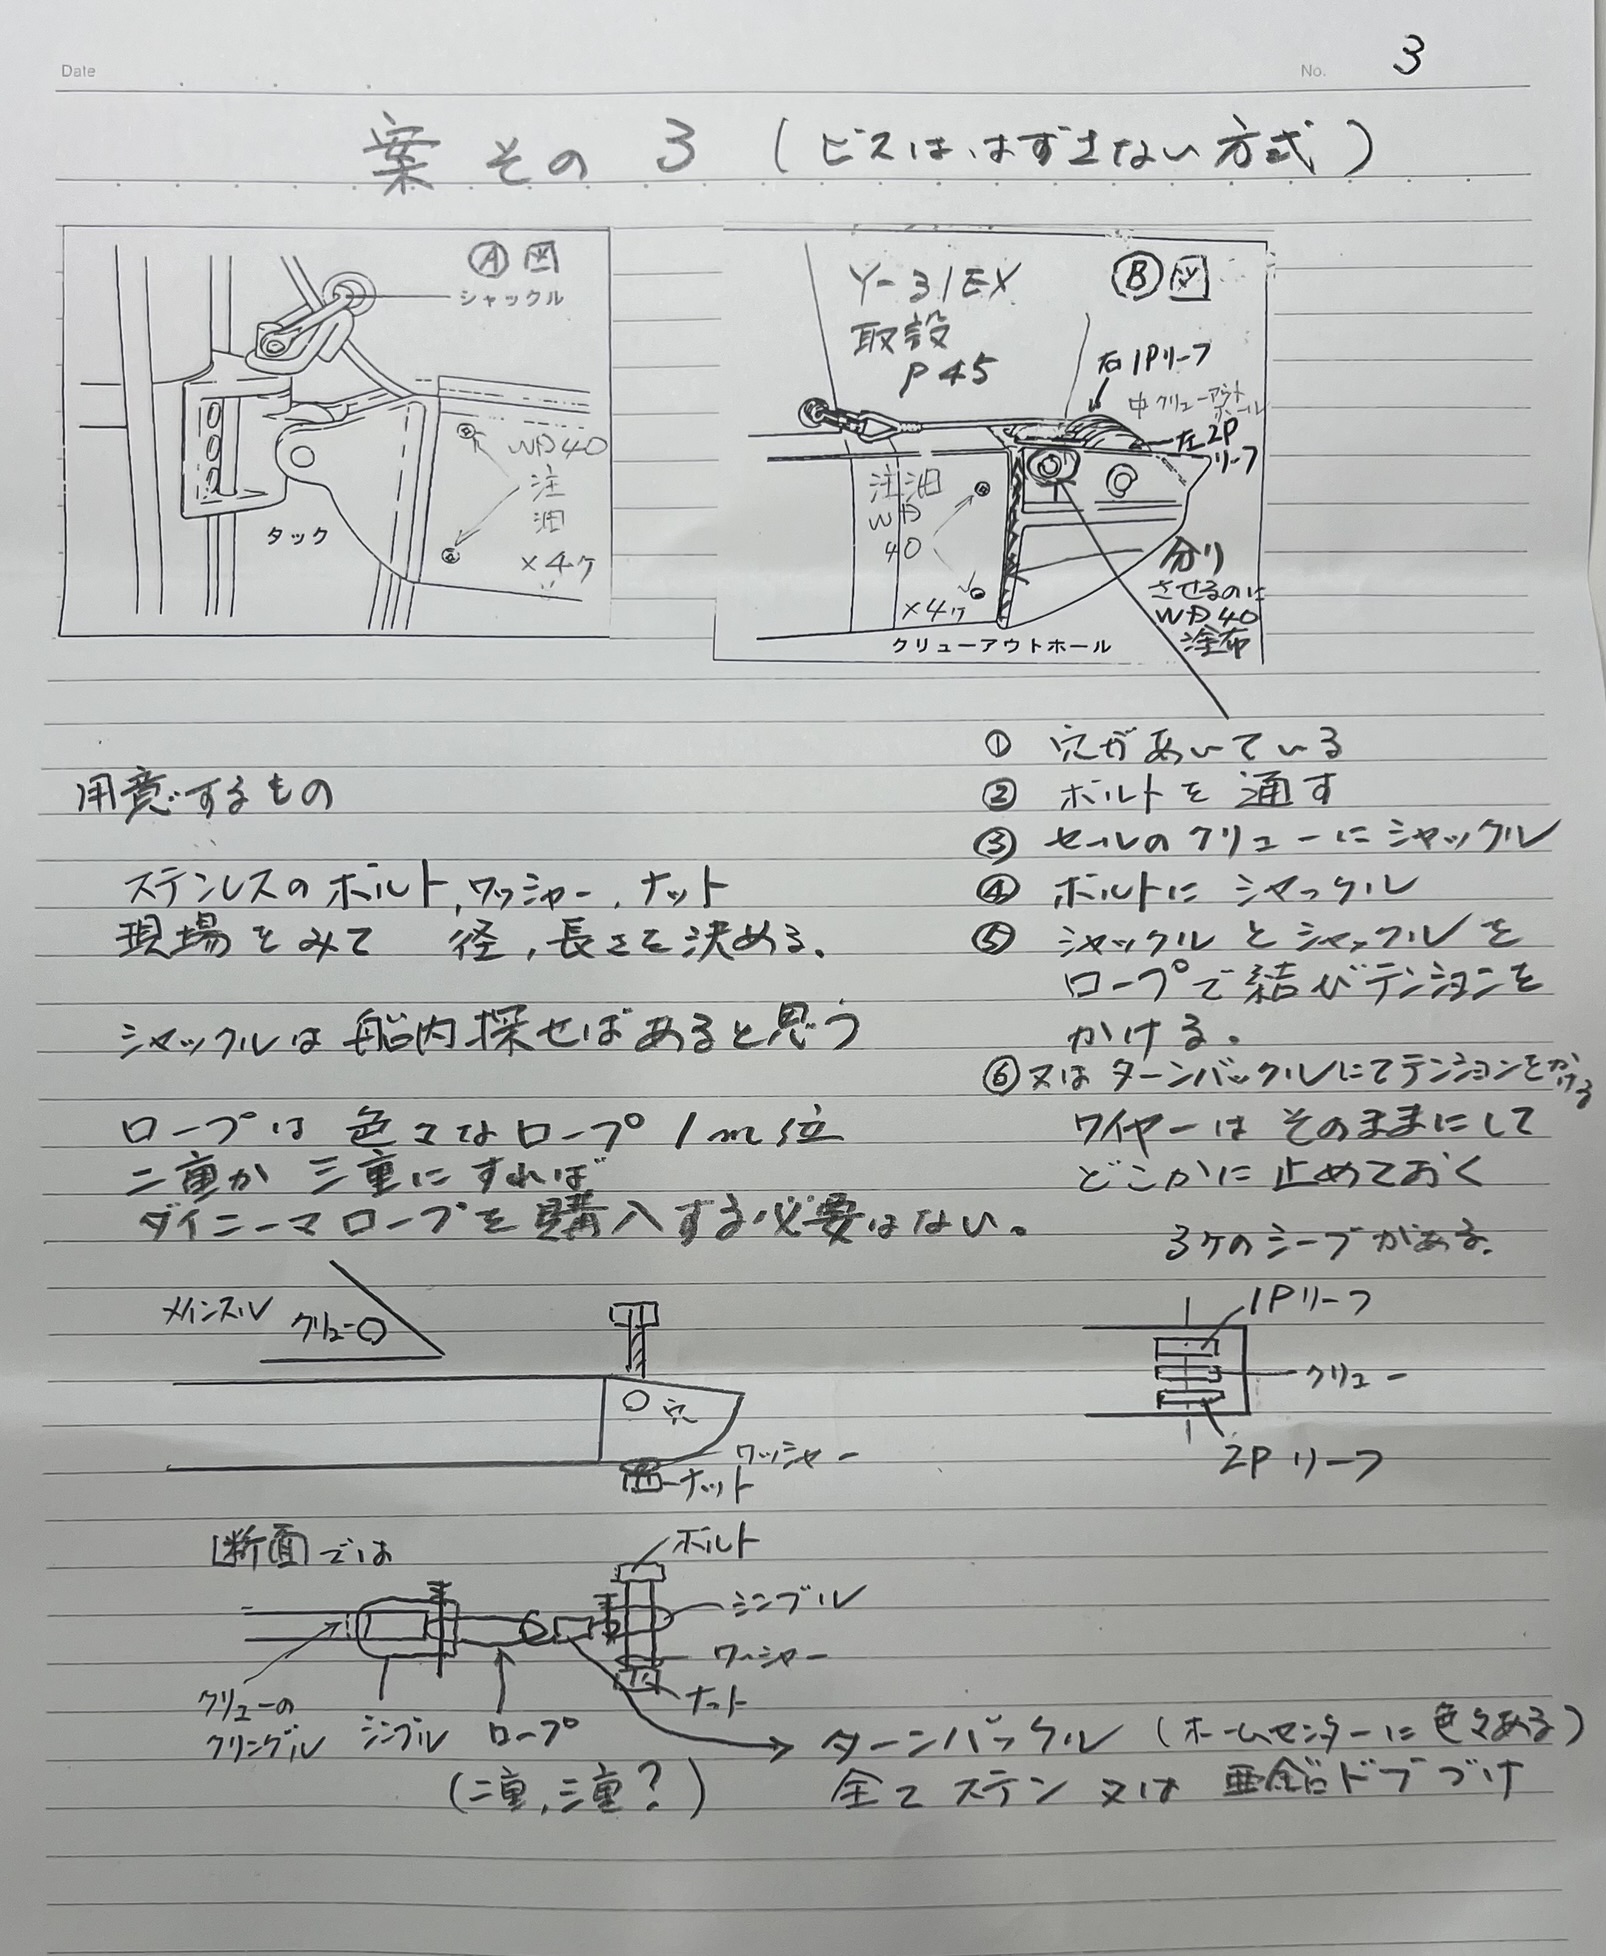 Date
No. 3
案その3（ビスは、はずさない方式）
Ⓐ図
シャックル
WD40
注
油
×4ケ
タック
Y-31EX
取設
P45
Ⓑ図
右1Pリーフ
中クリューアウト
ホール
左2P
リーフ
注油
WD
40
×4ケ
分り
させるのに
WD40
塗布
クリューアウトホール
① 穴があいている
② ボルトを通す
③ セールのクリューにシャックル
④ ボルトにシャックル
⑤ シャックルとシャックルを
ロープで結びテンションを
かける。
⑥又はターンバックルにてテンションをかける
ワイヤーはそのままにして
どこかに止めておく
用意するもの
ステンレスのボルト,ワッシャー,ナット
現場をみて 径,長さを決める。
シャックルは船内探せばあると思う
ロープは色々なロープ1m位
二重か三重にすれば
ダイニーマロープを購入する必要はない。
3ケのシーブがある。
メインスル
クリュー
穴
ワッシャー
ナット
1Pリーフ
クリュー
2Pリーフ
断面では
ボルト
シンブル
ワッシャー
ナット
クリューの
クリングル
シンブル
ロープ
(二重,三重?)
ターンバックル（ホームセンターに色々ある）
全てステン又は亜鉛ドブづけ